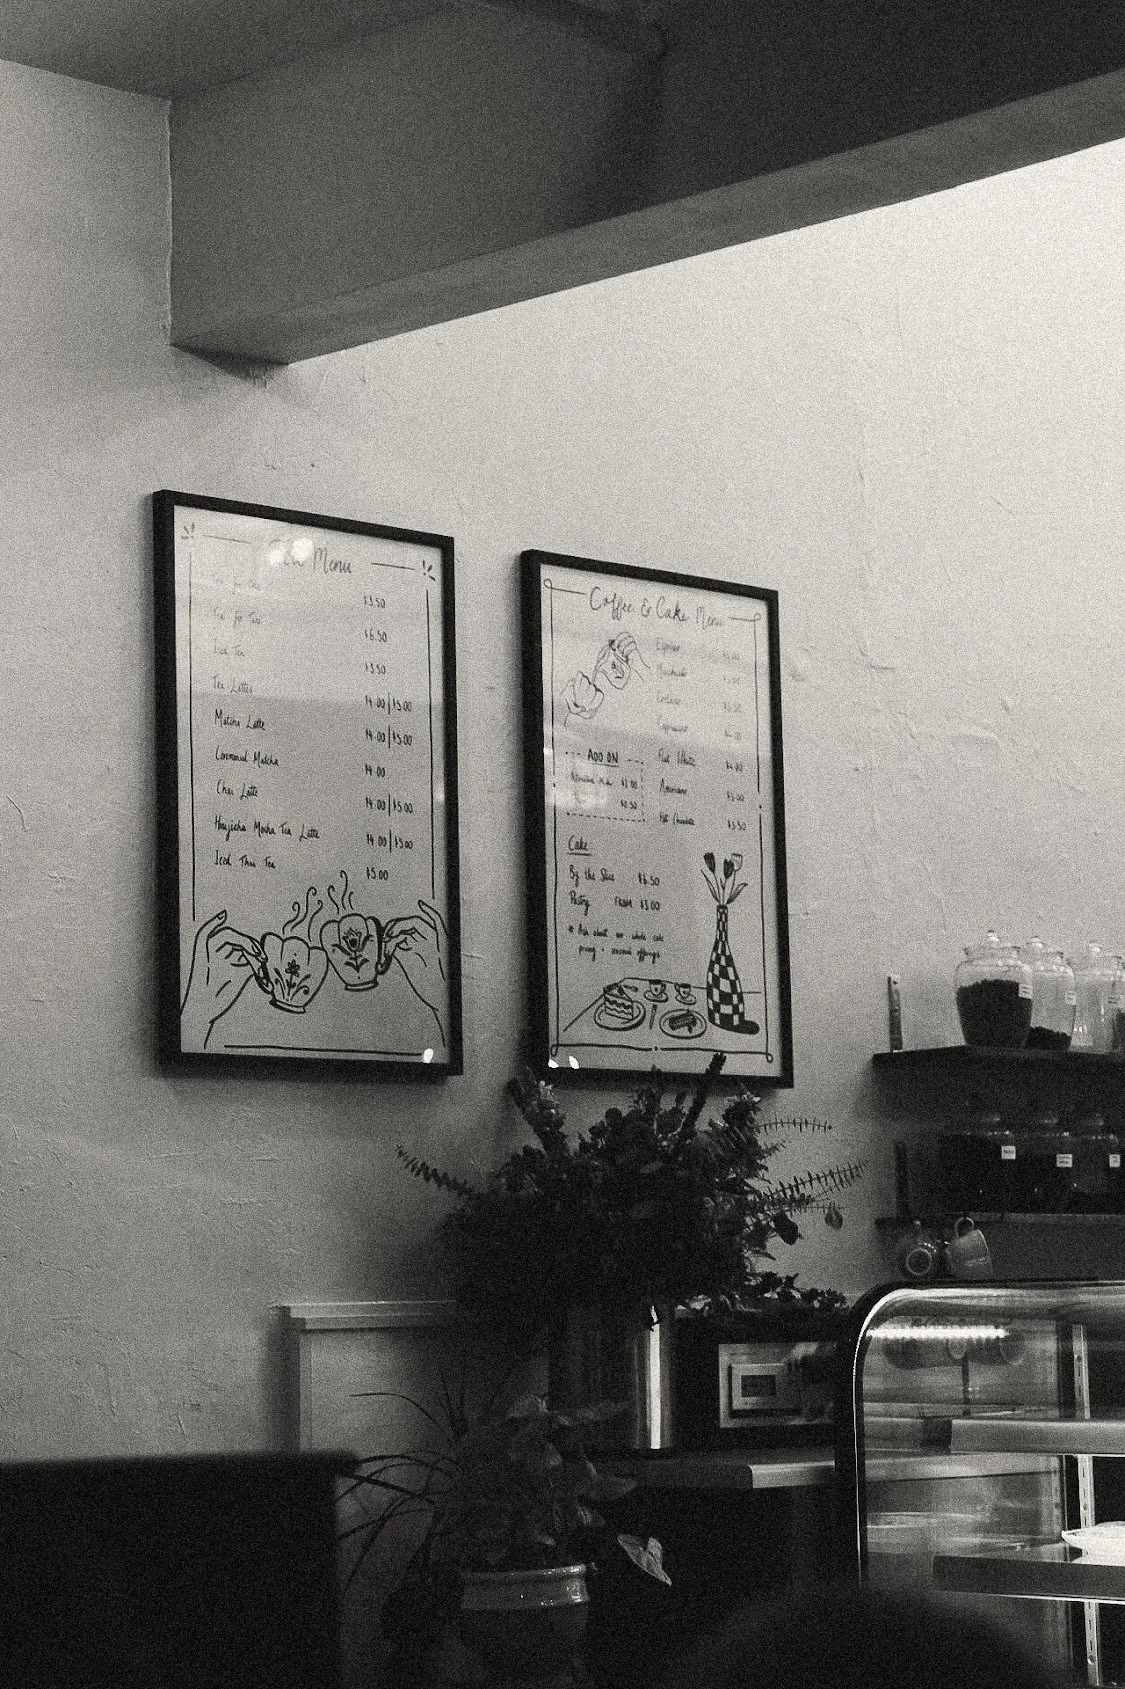 Tea Menu
Tea for One $3.50
Tea for Two $6.50
Iced Tea $3.50
Tea Lattes $4.00|$5.00
Matcha Latte $4.00|$5.00
Ceremonial Matcha $4.00
Chai Latte $4.00|$5.00
Houjicha Mocha Tea Latte $4.00|$5.00
Iced Thai Tea $5.00
Coffee & Cake Menu
Espresso
Macchiato
Cortado
Cappuccino
Flat White $4.00
Americano $3.00
Hot Chocolate $3.50
ADD ON
$1.00
$0.50
Cake
By the Slice $6.50
Pastry FROM $3.00
* Ask about our whole cake
pricing + seasonal offerings